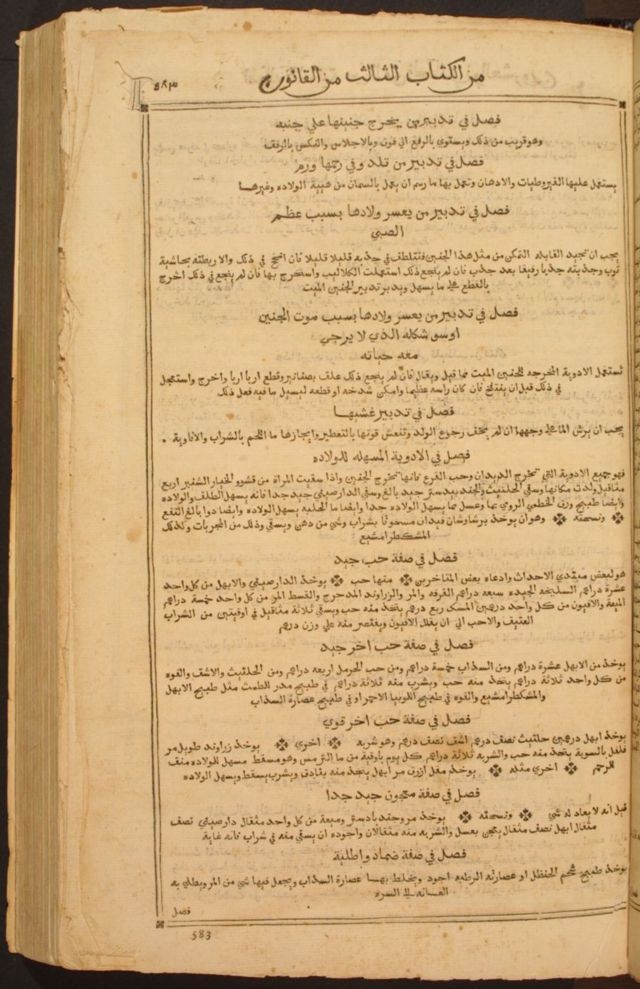 من الكتاب الثالث من القانون ٥٨٣
فصل في تدبير من يخرج جنينها علي جنبه
وهو قريب من ذلك ويستوي بالرفع الي فوق وبالاجلاس والتنكيس بالرفق
فصل في تدبير من تلد وفي رحمها ورم
يستعمل عليها القيروطيات والادهان وتعمل بها ما رسم ان يعمل بالسمان من هيية الولاده وغيرها
فصل في تدبير من يعسر ولادها بسبب عظم
الصبي
يجب ان تجيد القابله التمكن من مثل هذا الجنين فتتلطف في جذبه قليلا قليلا فان انجح في ذلك والا ربطته بحاشية
ثوب وجذبته جذبا رفيقا بعد جذب فان لم ينجع ذلك استعملت الكلاليب واستخرج بها فان لم ينجع في ذلك اخرج
بالقطع علي ما يسهل ويدبر تدبير الجنين الميت
فصل في تدبير من يعسر ولادها بسبب موت الجنين
او سو شكله الذي لا يرجي
معه حياته
تستعمل الادوية المخرجه للجنين الميت مما قيل ويقال فان لم ينجع ذلك علق بصنانير وقطع اربا اربا واخرج واستعجل
في ذلك قبل ان ينتفخ فان كان راسه عظيما وامكن شدخه او قطعه ليسيل ما فيه فعل ذلك
فصل في تدبير غشيها
يجب ان يرش الما علي وجهها ان لم يخف رجوع الولد وتنعش قوتها بالتعطير وايجارها ما اللحم بالشراب والافاوية
فصل في الادوية المسهله للولاده
فهو جميع الادوية التي تخرج الديدان وحب القرع فانها تخرج الجنين واذا سقيت المراة من قشور الخيار الشنبر اربع
مثاقيل ولدت مكانها وسقي الحلتيث والجندبيدستر جيد بالغ وسقي الدارصيني جيد جدا فانه يسهل الطلق والولاده
وايضا طبيخ وزن الخطمي الرومي بما وعسل مما يسهل الولاده جدا وايضا ما الحلبه يسهل الولاده وايضا دوا بالغ النفع
ونسخته وهو ان يوخذ برشاوشان فيداف مسحوقا بشراب وشي من دهن ويسقي وذلك من المجربات وكذلك
المشكطرامشيع
فصل في صفة حب جيد
هو لبعض مبتدي الاحداث وادعاه بعض المتاخرين منها حب يوخذ الدارصيني والابهل من كل واحد
عشرة دراهم السليخه الجيده سبعه دراهم القرفه والمر والزراوند المدحرج والقسط المر من كل واحد خمسة دراهم
الميعة والافيون من كل واحد درهمين المسك ربع درهم يتخذ منه حب ويسقي ثلاثة مثاقيل في اوقيتين من الشراب
العتيق والاحب الي ان يقلل الافيون ويقتصر منه علي وزن درهم
فصل في صفة حب اخر جيد
يوخذ من الابهل عشرة دراهم ومن السذاب خمسة دراهم ومن حب الحرمل اربعه دراهم ومن الحلتيث والاشق والفوه
من كل واحد ثلاثة دراهم يتخذ منه حب ويشرب منه ثلاثة دراهم في طبيخ مدر للطمث مثل طبيخ الابهل
والمشكطرامشيع والفوه في طبيخ اللوبيا الاحمر او في طبيخ عصارة السذاب
فصل في صفة حب اخر قوي
يوخذ ابهل درهمين حلتيث نصف درهم اشق نصف درهم وهو شربه اخري يوخذ زراوند طويل مر
فلفل بالسوية يتخذ منه حب والشربه ثلاثة دراهم كل يوم باوقية من ما الترمس وهو مسقط مسهل للولاده منق
للرحم اخري مثله يوخذ مقل ازرق مر ابهل يتخذ منه بنادق ويشرب يسقط ويسهل الولاده
فصل في صفة معجون جيد جدا
قيل انه لا يعاد له شي ونسخته يوخذ مر وجندبادستر وميعة من كل واحد مثقال دارصيني نصف
مثقال ابهل نصف مثقال يعجن بعسل والشربه منه مثقالان واجوده ان يسقي منه في شراب فانه غاية
فصل في صفة ضماد واطلية
يوخذ طبيخ شحم الحنظل او عصارته الرطبه اجود ويخلط بهما عصارة السذاب ويجعل فيها شي من المر ويطلي به
العانه الي السره
فصل
583